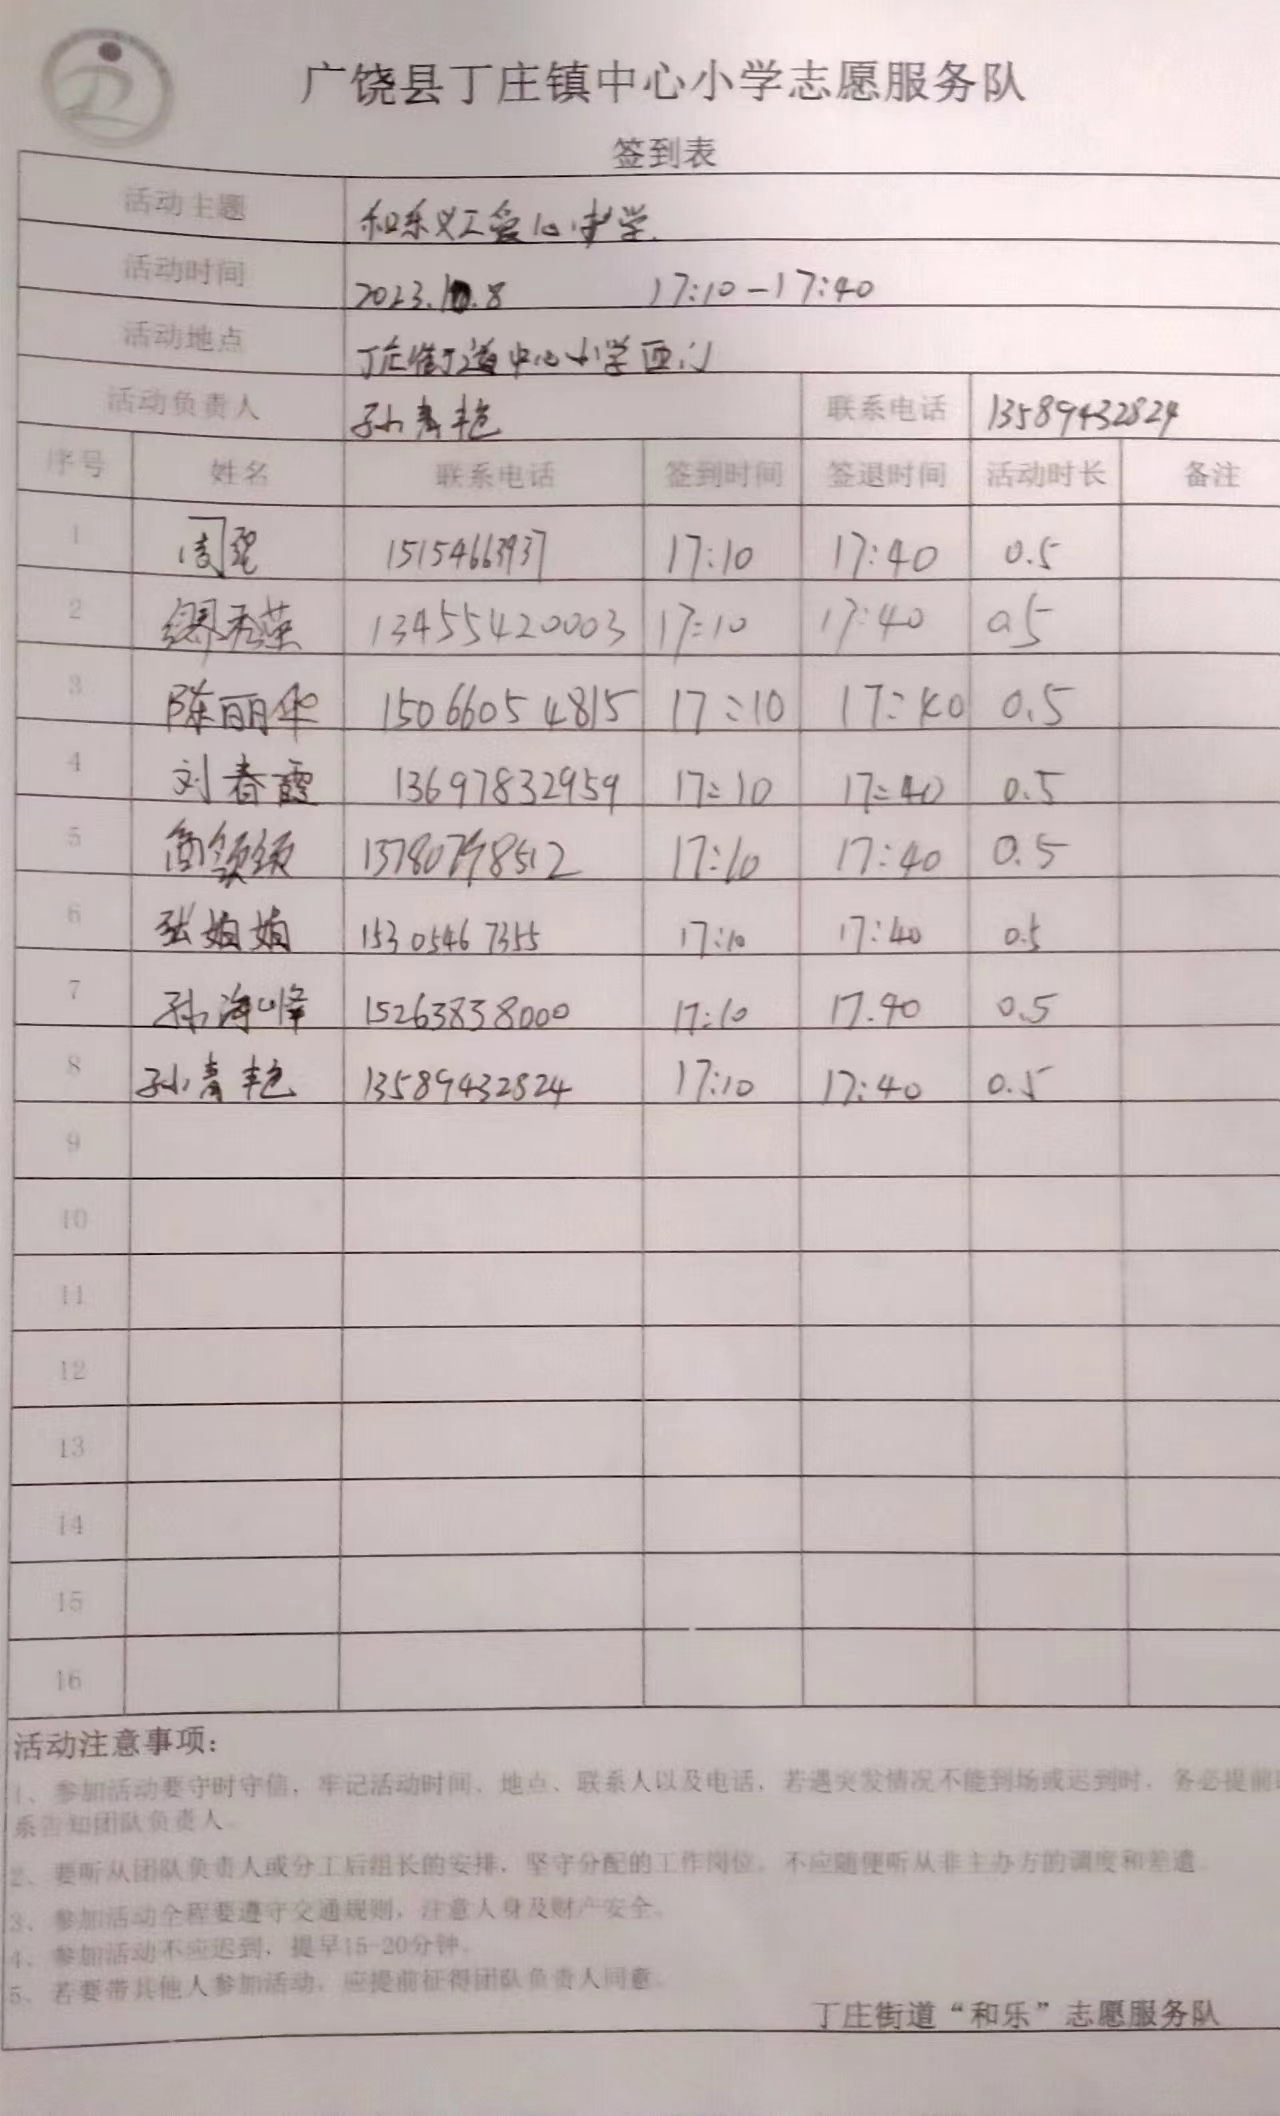 广饶县丁庄镇中心小学志愿服务队
签到表
活动主题 和乐义工爱心护学.
活动时间 2023.10.8 17:10-17:40
活动地点 丁庄街道中心小学西门
活动负责人 孙青艳 联系电话 13589432824
序号 姓名 联系电话 签到时间 签退时间 活动时长 备注
1 周 15154663937 17:10 17:40 0.5
2 缪秀莲 13455420003 17:10 17:40 0.5
3 陈丽华 15066054815 17:10 17:40 0.5
4 刘春霞 13697832959 17:10 17:40 0.5
5 17:10 17:40 0.5
6 张娟娟 15305467355 17:10 17:40 0.5
7 孙海峰 15263838000 17:10 17.40 0.5
8 孙青艳 13589432824 17:10 17:40 0.5
9
10
11
12
13
14
15
16
活动注意事项：
1、参加活动要守时守信，牢记活动时间、地点、联系人以及电话，若遇突发情况不能到场或迟到时，务必提前
系告知团队负责人。
2、要听从团队负责人或分工后组长的安排，坚守分配的工作岗位。不应随便听从非主办方的调度和差遣。
3、参加活动全程要遵守交通规则，注意人身及财产安全。
4、参加活动不应迟到，提早15-20分钟。
5、若要带其他人参加活动，应提前征得团队负责人同意。
丁庄街道“和乐”志愿服务队